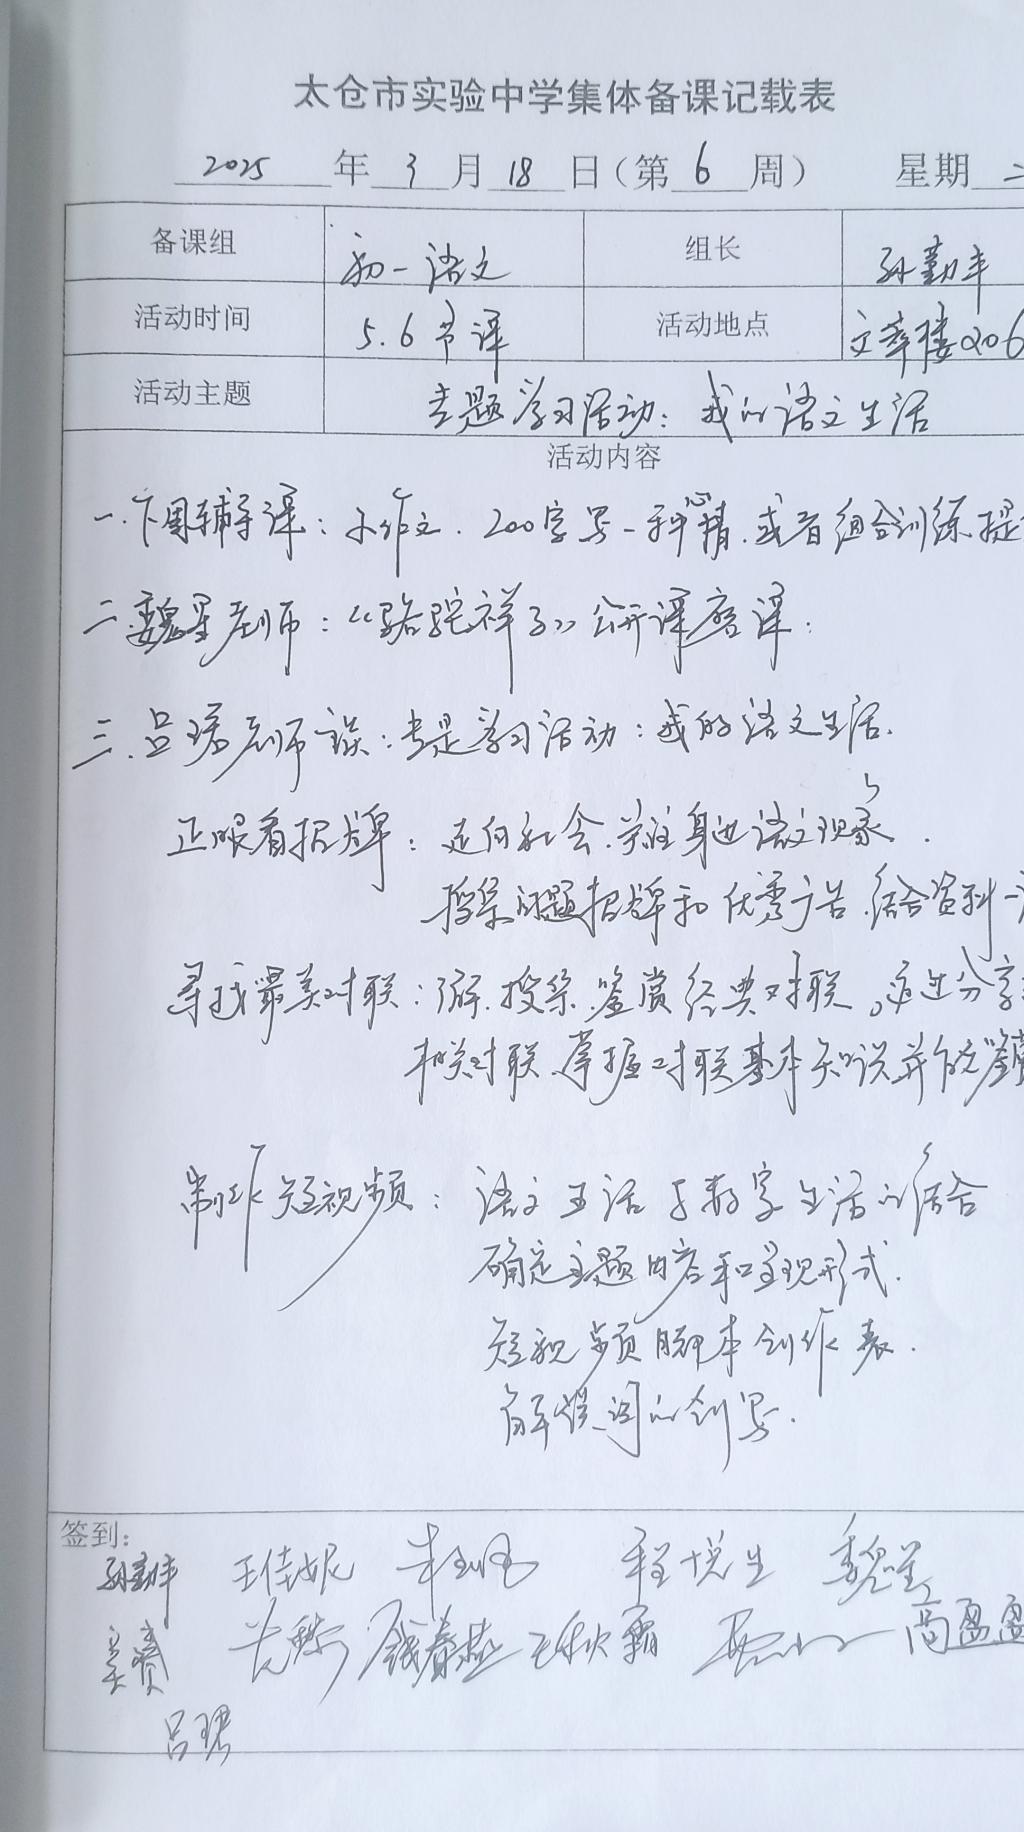 太仓市实验中学集体备课记载表
2025 年 3 月 18 日（第 6 周） 星期 二
备课组 初一语文 组长 孙勤丰
活动时间 5.6节课 活动地点 文萃楼206
活动主题 专题学习活动：我的语文生活
活动内容
一.下周辅导课：小作文.200字写一种心情.或者组合训练提
二.魏星老师：《骆驼祥子》公开课磨课.
三.吕珺老师：专题学习活动：我的语文生活.
正眼看招牌：走向社会.关注身边语文现象.
搜集问题招牌和优秀广告.结合资料一
寻找最美对联：了解.搜集.鉴赏经典对联,通过分享
相关对联.掌握对联基本知识并能鉴赏
制作短视频：语文生活与数字生活的结合
确定主题内容和呈现形式.
短视频脚本创作表.
解说词的创写.
签到:
孙勤丰 王佳妮 程悦生 魏星
钱春燕 王秋霜 高盈盈
吕珺